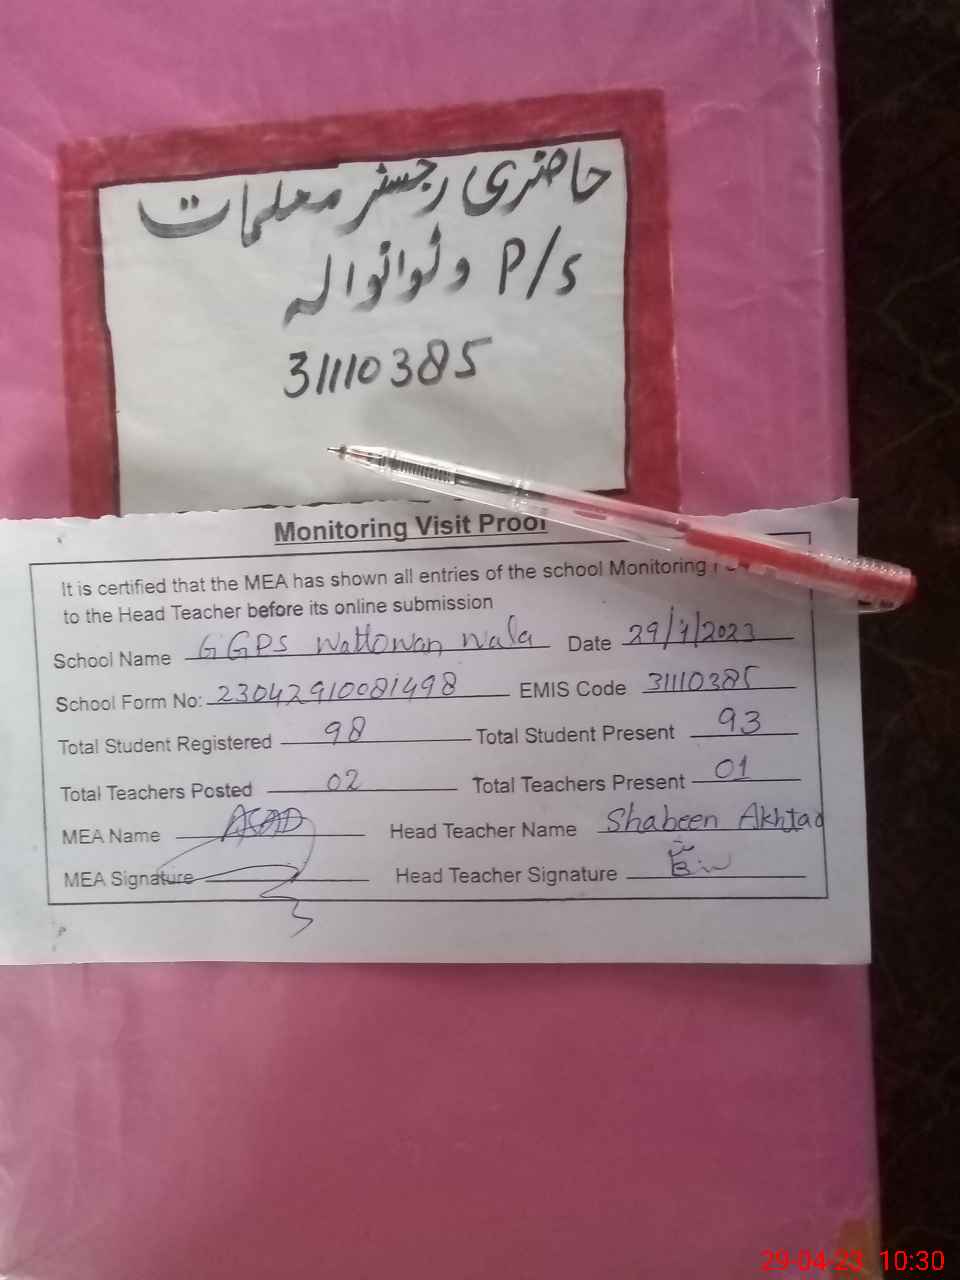 حاضری رجسٹر معلمات
P/s وٹوانوالہ
31110385
Monitoring Visit Proof
It is certified that the MEA has shown all entries of the school Monitoring
to the Head Teacher before its online submission
School Name GGPS Wattowan wala Date 29/4/2023
School Form No: 23042910081498 EMIS Code 31110385
Total Student Registered 98 Total Student Present 93
Total Teachers Posted 02 Total Teachers Present 01
MEA Name ASAD Head Teacher Name Shabeen Akhtad
MEA Signature Head Teacher Signature
29-04-23 10:30